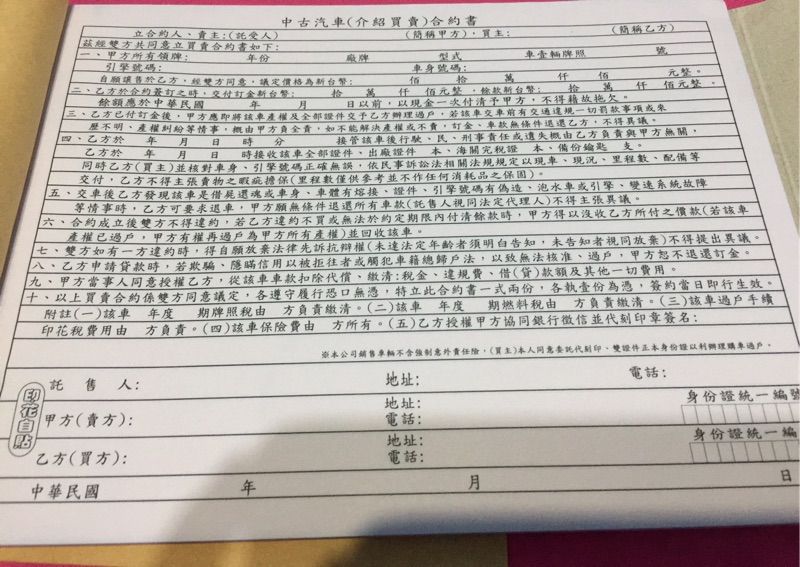 中古汽車(介紹買賣)合約書
立合約人、賣主:(託受人) (簡稱甲方),買主: (簡稱乙方)
茲經雙方共同意立買賣合約書如下:
一、甲方所有領牌: 年份 廠牌 型式 車壹輛牌照 號
引擎號碼: 車身號碼:
自願讓售於乙方,經雙方同意,議定價格為新台幣: 佰 拾 萬 仟 佰 元整。
二、乙方於合約簽訂之時,交付訂金新台幣: 拾 萬 仟 佰元整,餘款新台幣: 拾 萬 仟 佰元整。
餘額應於中華民國 年 月 日以前,以現金一次付清予甲方,不得藉故拖欠。
三、乙方已付訂金後,甲方應即將該車產權及全部證件交予乙方辦理過戶,若該車交車前有交通違規一切罰款事項或來
歷不明、產權糾紛等情事,概由甲方負全責,如不能解決產權或不賣,訂金、車款無條件退還乙方,不得異議。
四、乙方於 年 月 日 時 分 接管該車後行駛、民、刑事責任或遺失概由乙方負責與甲方無關,
乙方於 年 月 日 時接收該車全部證件、出廠證件 本、海關完稅證 本、備份鑰匙 支。
同時乙方(買主)並核對車身、引擎號碼正確無誤,依民事訴訟法相關法規規定以現車、現況、里程數、配備等
交付,乙方不得主張賣物之瑕疵擔保(里程數僅供參考並不作任何消耗品之保固)。
五、交車後乙方發現該車是借屍還魂或車身、車體有熔接、證件、引擎號碼有偽造、泡水車或引擎、變速系統故障
等情事時,乙方可要求退車,甲方願無條件退還所有車款(託售人視同法定代理人)不得主張異議。
六、合約成立後雙方不得違約,若乙方違約不買或無法於約定期限內付清餘款時,甲方得以沒收乙方所付之價款(若該車
產權已過戶,甲方有權再過戶為甲方所有產權)並回收該車。
七、雙方如有一方違約時,得自願放棄法律先訴抗辯權(未達法定年齡者須明白告知,未告知者視同放棄)不得提出異議。
八、乙方申請貸款時,若欺騙、隱瞞信用以被拒往者或觸犯車籍總歸戶法,以致無法核准、過戶,甲方恕不退還訂金。
九、甲方當事人同意授權乙方,從該車車款扣除代償、繳清:稅金、違規費、借(貸)款額及其他一切費用。
十、以上買賣合約係雙方同意議定,各遵守履行恐口無憑,特立此合約書一式兩份,各執壹份為憑,簽約當日即行生效。
附註(一)該車 年度 期牌照稅由 方負責繳清。(二)該車 年度 期燃料稅由 方負責繳清。(三)該車過戶手續
印花稅費用由 方負責。(四)該車保險費由 方所有。(五)乙方授權甲方協同銀行徵信並代刻印章簽名:
※本公司銷售車輛不含強制意外責任險,(買主)本人同意委託代刻印、雙證件正本身份證以利辦理購車過戶。
託售人: 地址: 電話:
印花自貼
甲方(賣方): 地址: 電話: 身份證統一編號
乙方(買方): 地址: 電話: 身份證統一編
中華民國 年 月 日